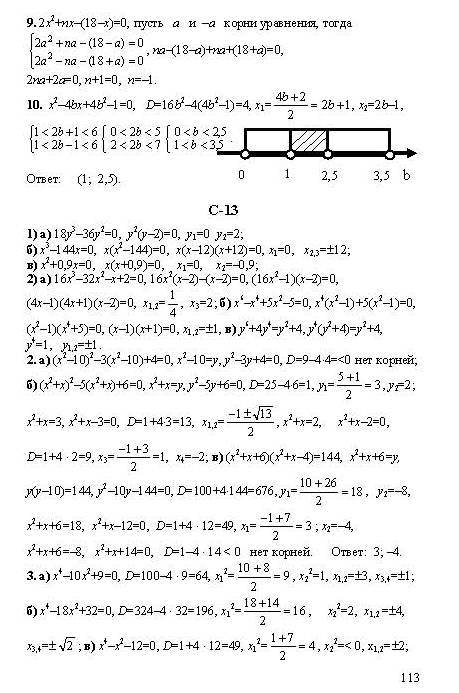 9. 2x²+nx–(18–x)=0, пусть a и –a корни уравнения, тогда
{2a²+na–(18–a)=0
{2a²–na–(18+a)=0 , na–(18–a)+na+(18+a)=0,
2na+2a=0, n+1=0, n=–1.
10. x²–4bx+4b²–1=0, D=16b²–4(4b²–1)=4, x₁=(4b+2)/2=2b+1, x₂=2b–1,
{1<2b+1<6 {0<2b<5 {0<b<2,5
{1<2b–1<6 {2<2b<7 {1<b<3,5 .
0 1 2,5 3,5 b
Ответ: (1; 2,5).
С-13
1) а) 18y³–36y²=0, y²(y–2)=0, y₁=0 y₂=2;
б) x³–144x=0, x(x²–144)=0, x(x–12)(x+12)=0, x₁=0, x₂,₃=±12;
в) x²+0,9x=0, x(x+0,9)=0, x₁=0, x₂=–0,9;
2) а) 16x³–32x²–x+2=0, 16x²(x–2)–(x–2)=0, (16x²–1)(x–2)=0,
(4x–1)(4x+1)(x–2)=0, x₁,₂=1/4, x₃=2; б) x⁶–x⁴+5x²–5=0, x⁴(x²–1)+5(x²–1)=0,
(x²–1)(x⁴+5)=0, (x–1)(x+1)=0, x₁,₂=±1, в) y⁶+4y⁴=y²+4, y⁴(y²+4)=y²+4,
y⁴=1, y₁,₂=±1.
2. а) (x²–10)²–3(x²–10)+4=0, x²–10=y, y²–3y+4=0, D=9–4·4=<0 нет корней;
б) (x²+x)²–5(x²+x)+6=0, x²+x=y, y²–5y+6=0, D=25–4·6=1, y₁=(5+1)/2=3, y₂=2;
x²+x=3, x²+x–3=0, D=1+4·3=13, x₁,₂=(–1±√13)/2, x²+x=2, x²+x–2=0,
D=1+4·2=9, x₃=(–1+3)/2=1, x₄=–2; в) (x²+x+6)(x²+x–4)=144, x²+x+6=y,
y(y–10)=144, y²–10y–144=0, D=100+4·144=676, y₁=(10+26)/2=18, y₂=–8,
x²+x+6=18, x²+x–12=0, D=1+4·12=49, x₁=(–1+7)/2=3; x₂=–4,
x²+x+6=–8, x²+x+14=0, D=1–4·14<0 нет корней. Ответ: 3; –4.
3. а) x⁴–10x²+9=0, D=100–4·9=64, x₁²=(10+8)/2=9, x₂²=1, x₁,₂=±3, x₃,₄=±1;
б) x⁴–18x²+32=0, D=324–4·32=196, x₁²=(18+14)/2=16, x₂²=2, x₁,₂=±4,
x₃,₄=±√2; в) x⁴–x²–12=0, D=1+4·12=49, x₁²=(1+7)/2=4, x₂²=<0, x₁,₂=±2;
113